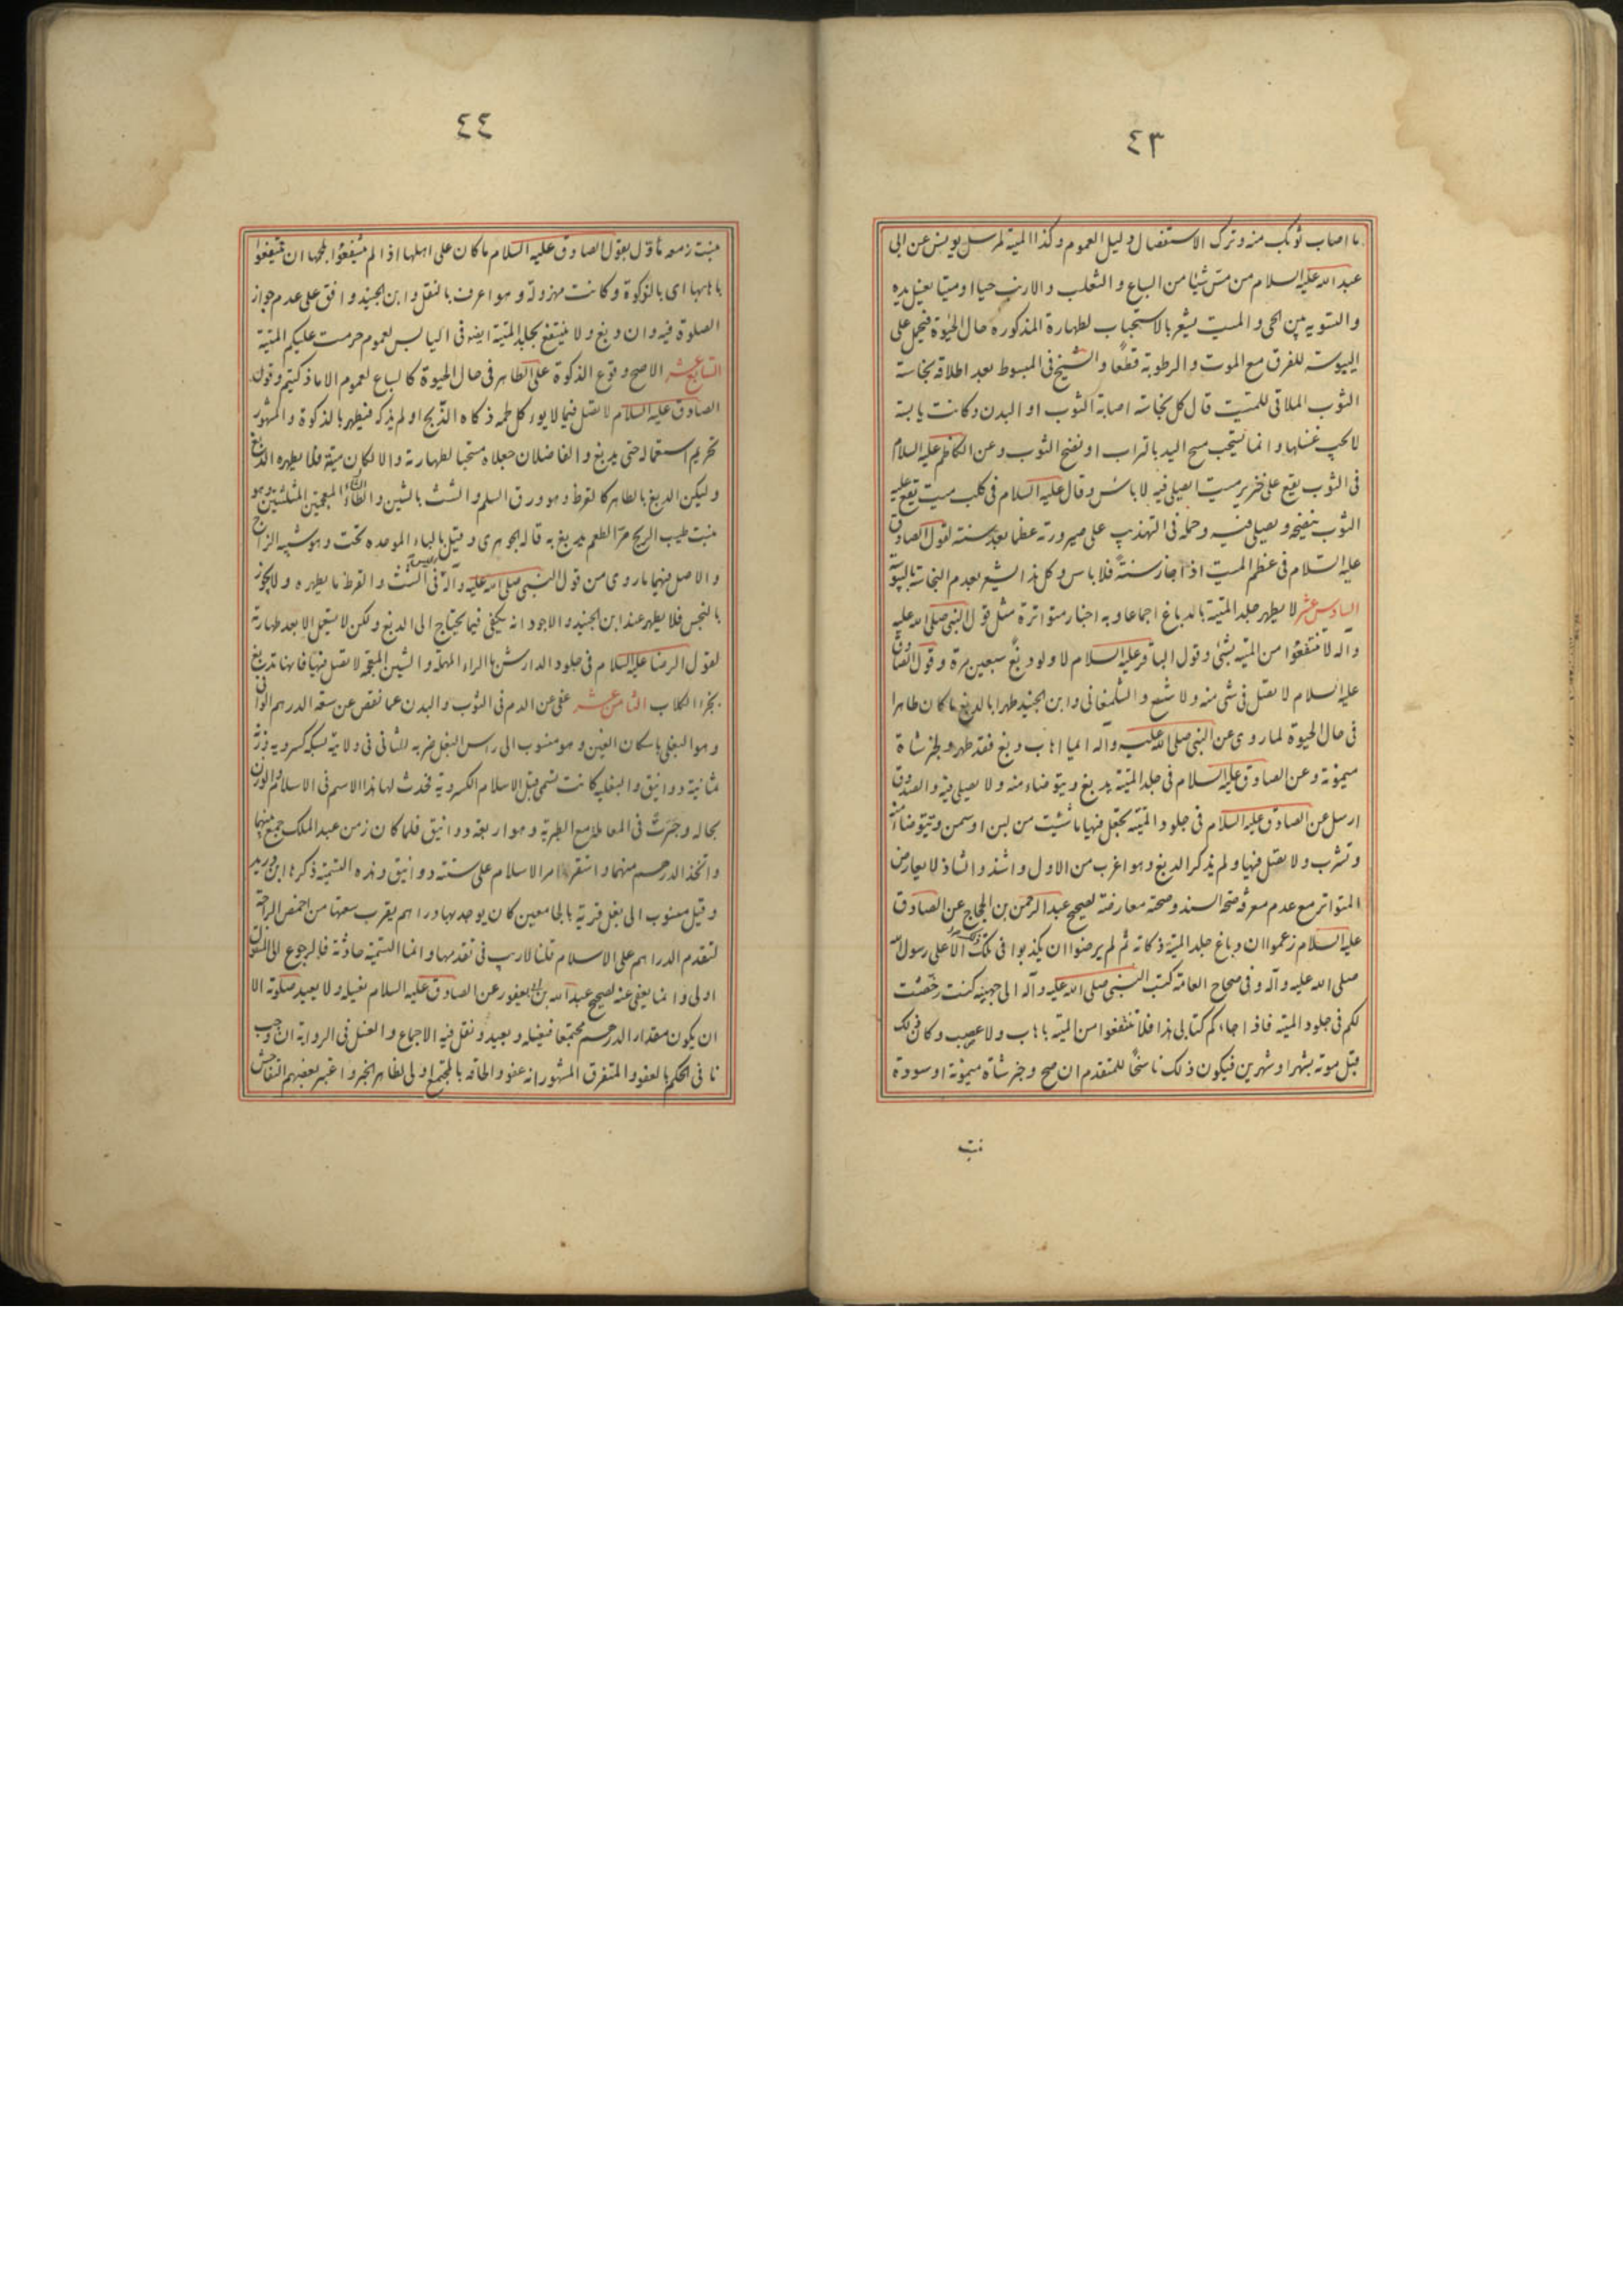 ٤٣
ما اصاب ثوبك منه وترك الاستفصال دليل العموم وكذا الميتة لمرسل يونس عن ابى
عبد الله عليه السلام من مس شيئا من السباع و الثعلب والارنب حيا او ميتا يغسل يده
والتسوية بين الحى و الميت يشعر بالاستحباب لطهارة المذكورة حال الحيوة فيحمل على
اليبوسة للفرق مع الموت والرطوبة قطعا و الشيخ فى المبسوط بعد اطلاقه نجاسة
الثوب الملاقى للميت قال كل نجاسة اصابة الثوب او البدن وكانت يابسة
لا يجب غسلها وانما يستحب مسح اليد بالتراب او نضح الثوب وعن الكاظم عليه السلام
فى الثوب يقع على خنزير ميت ايصلى فيه لا باس وقال عليه السلام فى كلب ميت يقع عليه
الثوب ينضحه ويصلى فيه وحمله فى التهذيب على صيرورته عظما بعد سنة لقول الصادق
عليه السلام فى عظم الميت اذا جاز سنة فلا باس وكل هذا يشعر بعدم النجاسة باليبوسة
السادس عشر لا يطهر جلد الميتة بالدباغ اجماعا وبه اخبار متواترة مثل قول النبى صلى الله عليه
وآله لا تنتفعوا من الميتة بشئ وقول الباقر عليه السلام لا ولو دبغ سبعين مرة وقول الصادق
عليه السلام لا تصل فى شئ منه ولا شسع و الشلمغانى وابن الجنيد طهرا بالدبغ ما كان طاهرا
فى حال الحيوة لما روى عن النبى صلى الله عليه وآله ايما اهاب دبغ فقد طهر ولخبر شاة
ميمونة وعن الصادق عليه السلام فى جلد الميتة يدبغ ويتوضاء منه ولا يصلى فيه والصدوق
ارسل عن الصادق عليه السلام فى جلود الميتة تجعل فيها ما شئت من لبن او سمن وتتوضاء منه
وتشرب ولا تصل فيها ولم يذكر الدبغ وهو اغرب من الاول واشذ والشاذ لا يعارض
المتواتر مع عدم معرفة صحة السند وصحته معارضة لصحيح عبد الرحمن بن الحجاج عن الصادق
عليه السلام زعموا ان دباغ جلد الميتة ذكاته ثم لم يرضوا ان يكذبوا فى ذلك الا على رسول الله
صلى الله عليه وآله وفى صحاح العامة كتب النبى صلى الله عليه وآله الى جهينة كنت رخصت
لكم فى جلود الميتة فاذا جاءكم كتابى هذا فلا تنتفعوا من الميتة باهاب ولا عصب وكان ذلك
قبل موته بشهر او شهرين فيكون ذلك ناسخا للمتقدم ان صح وخبر شاة ميمونة او سودة
بنت
٤٤
بنت زمعه تأول بقول الصادق عليه السلام ما كان على اهلها اذا لم ينتفعوا بلحمها ان ينتفعوا
باهابها اى بالذكوة وكانت مهزولة وهو اعرف بالنقل وابن الجنيد وافق على عدم جواز
الصلوة فيه وان دبغ ولا ينتفع بجلد الميتة ايضا فى اليابس لعموم حرمت عليكم الميتة
السابع عشر الاصح وقوع الذكوة على الطاهر فى حال الحيوة كالسباع لعموم الا ما ذكيتم وقول
الصادق عليه السلام لا تصل فيما لا يؤكل لحمه ذكاه الذابح او لم يذكه فيطهر بالذكوة والمشهور
تحريم استعماله حتى يدبغ و الفاضلان جعلاه مستحبا لطهارته والا لكان ميتة فلا يطهره الدبغ
وليكن الدبغ بالطاهر كالقرظ وهو ورق السلم و الشث بالشين والثاء المعجمتين المثلثتين وهو
نبت طيب الريح مر الطعم يدبغ به قاله الجوهرى وقيل بالباء الموحدة تحت وهو شبيه الزاج
والاصل فيهما ما روى من قول النبى صلى الله عليه وآله فى الشث والقرظ ما يطهره ولا يجوز
بالنجس فلا يطهر عند ابن الجنيد والاجود انه يكفى فيما يحتاج الى الدبغ ولكن لا يستعمل الا بعد طهارته
لقول الرضا عليه السلام فى جلود الدارش بالراء المهملة و الشين المعجمة لا تصل فيها فانها تدبغ
بخرء الكلاب الثامن عشر عفى عن الدم فى الثوب والبدن عما نقص عن سعة الدرهم الوافى
وهو البغلى باسكان الغين وهو منسوب الى راس البغل ضربه للثانى فى ولايته بسكة كسروية وزنته
ثمانية دوانيق والبغلية كانت تسمى قبل الاسلام الكسروية فحدث لها هذا الاسم فى الاسلام والوزن
بحاله وجرت فى المعاملة مع الطبرية وهو اربعة دوانيق فلما كان زمن عبد الملك جمع بينهما
واتخذ الدرهم منهما و استقر امر الاسلام على ستة دوانيق وهذه التسمية ذكرها ابن دريد
وقيل منسوب الى بغل قرية بالجامعين كان يوجد بها دراهم يقرب سعتها من اخمص الراحة
لتقدم الدراهم على الاسلام قلنا لا ريب فى تقدمها وانما التسمية حادثة فالرجوع الى المنقول
اولى وانما يعفى عنه لصحيح عبد الله بن ابى يعفور عن الصادق عليه السلام يغسله ولا يعيد صلوته الا
ان يكون مقدار الدرهم مجتمعا فيغسله ويعيد ونقل فيه الاجماع و الغسل فى الرواية ان وجب
نافى الحكم بالعفو والمتفرق المشهور انه عفو والحاقه بالمجتمع اولى لظاهر الخبر واعتبر بعضهم التفاحش